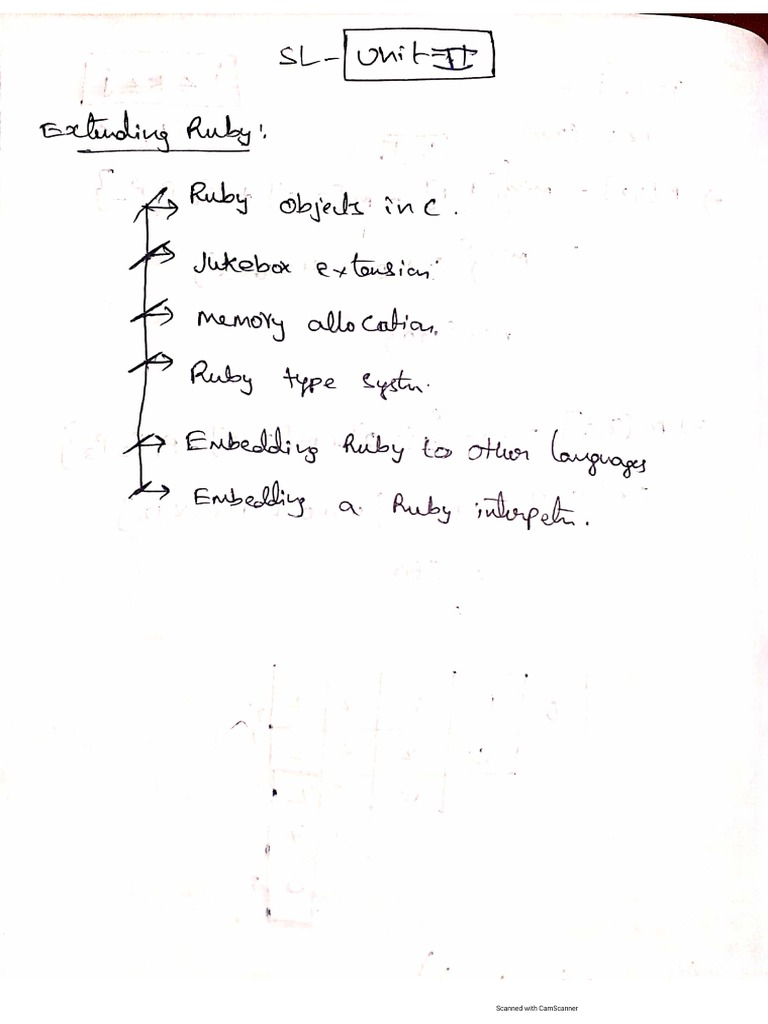 SL- Unit-II
Extending Ruby:
Ruby objects in C.
Jukebox extension
Memory allocation.
Ruby type systm.
Embedding Ruby to other languages
Embedding a Ruby interpetr.
Scanned with CamScanner